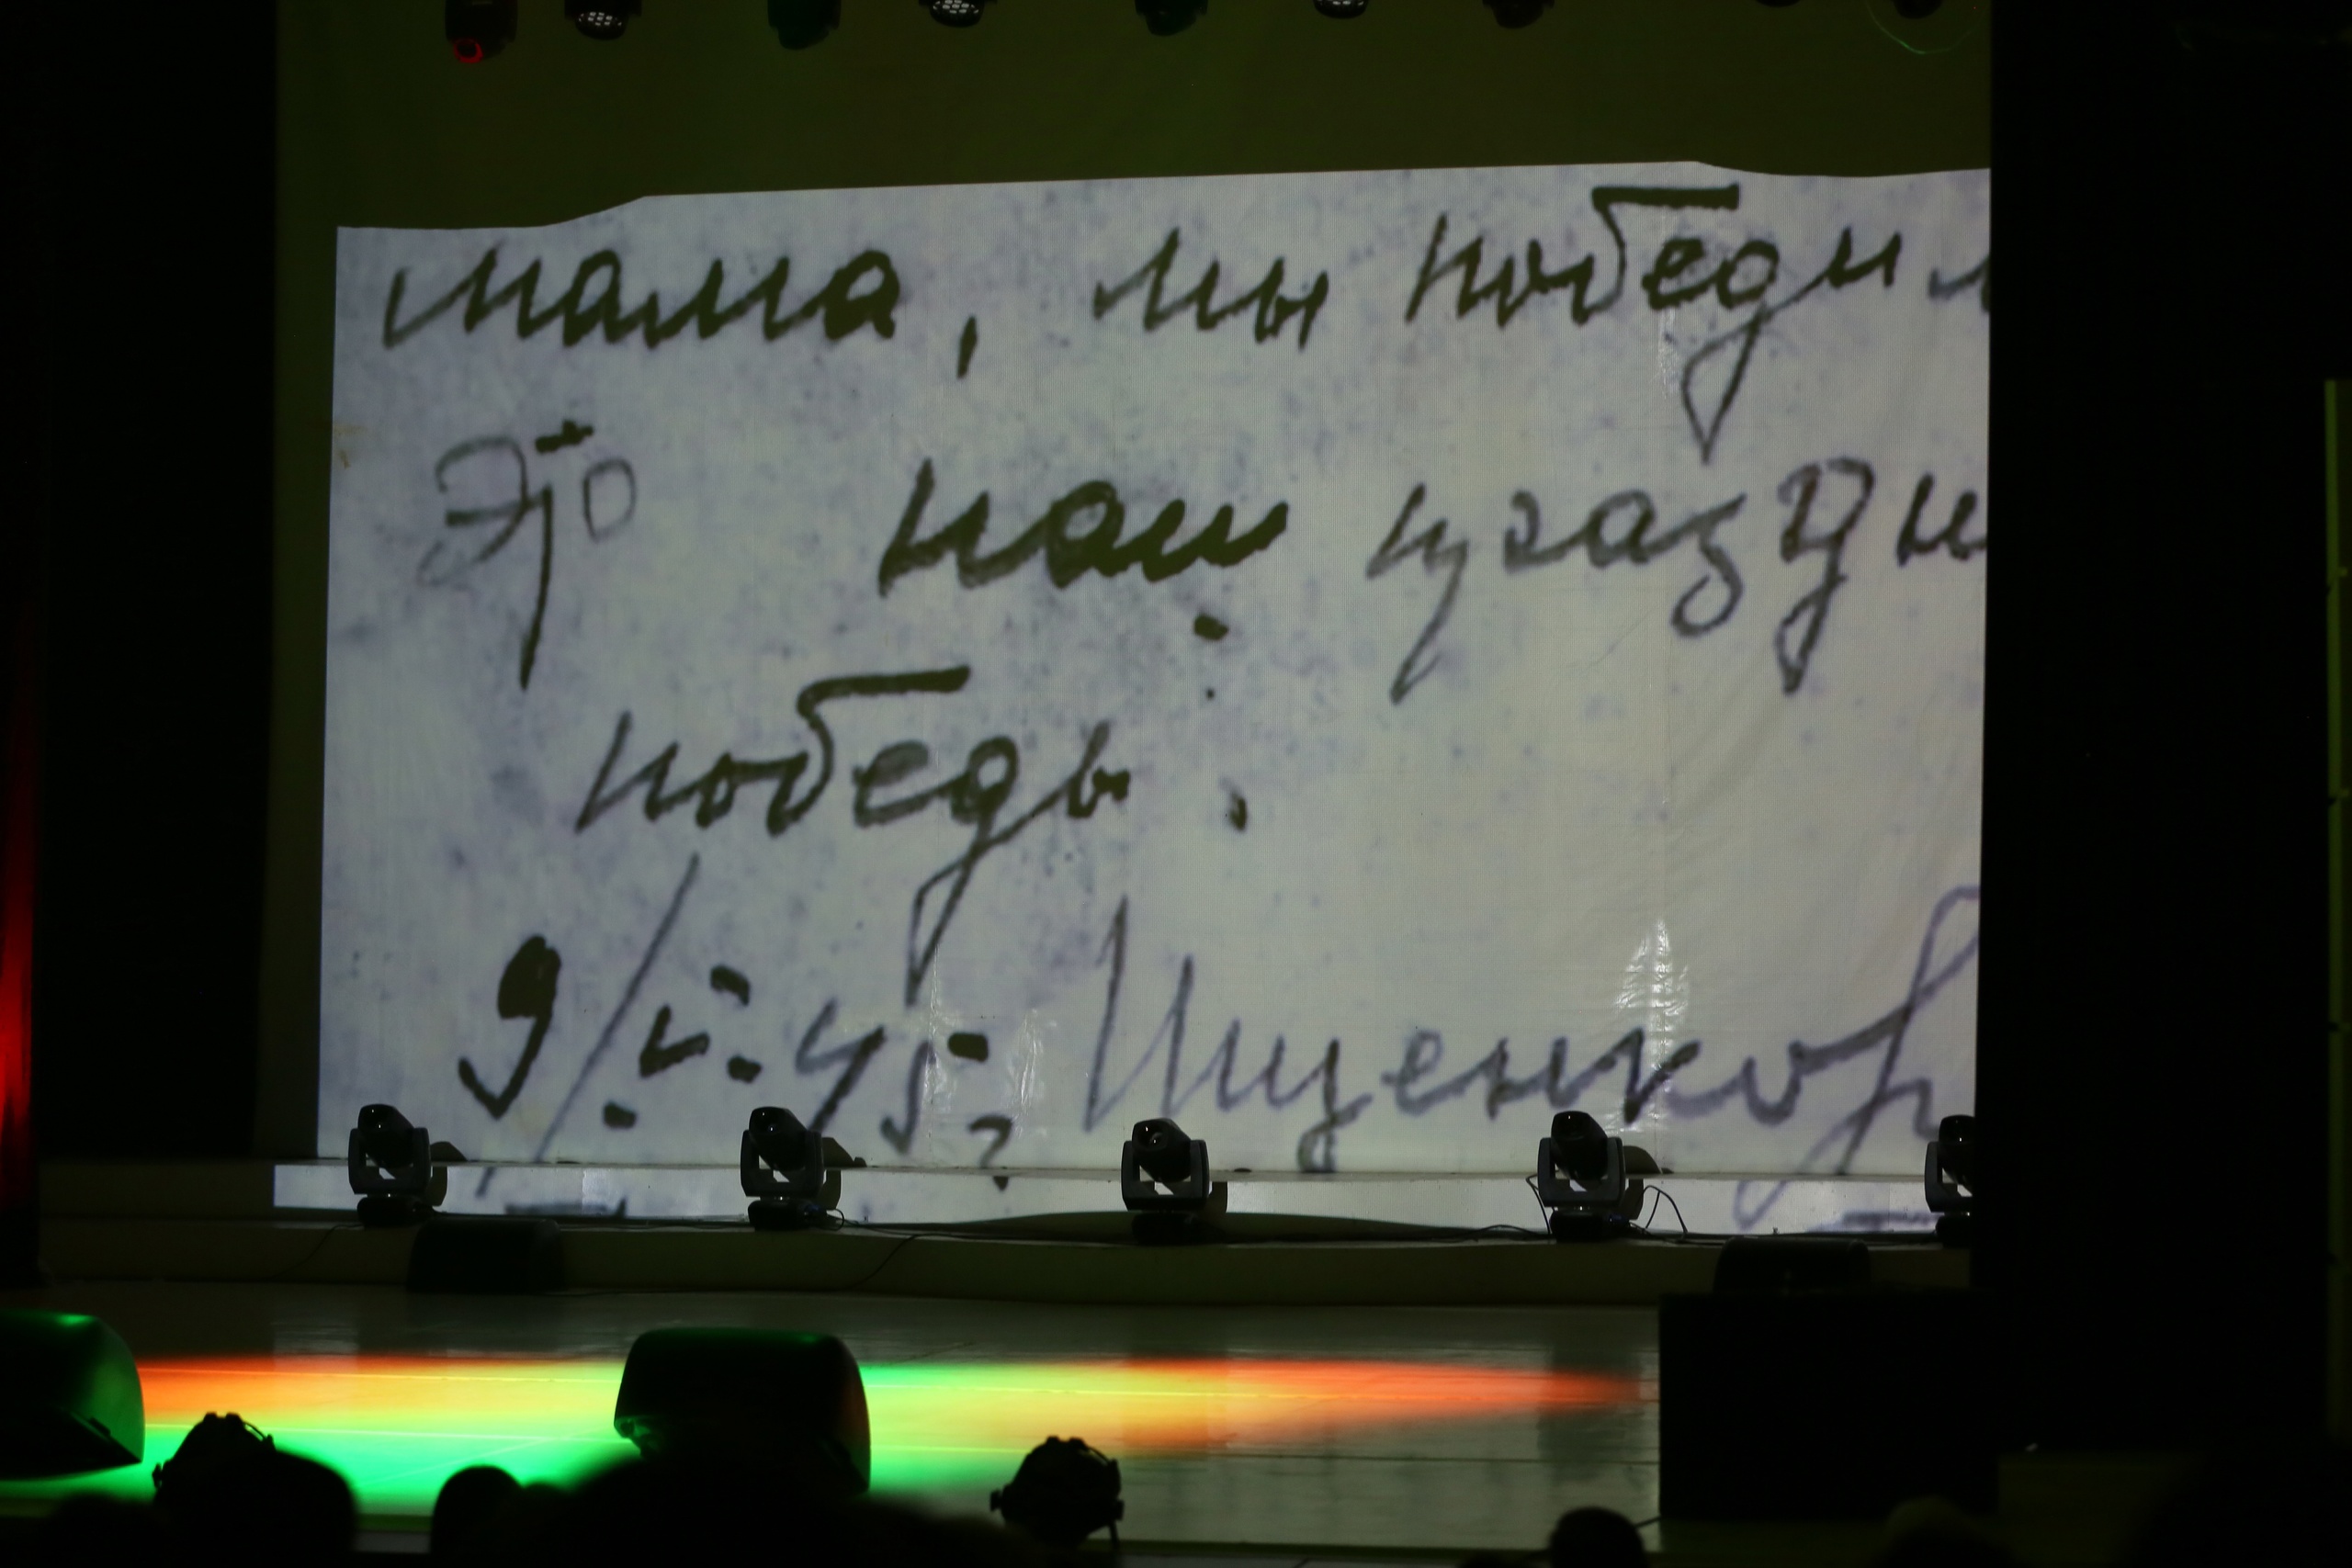 мама, мы победил
Это наш праздни
победы.
9/V-45г Ищенко